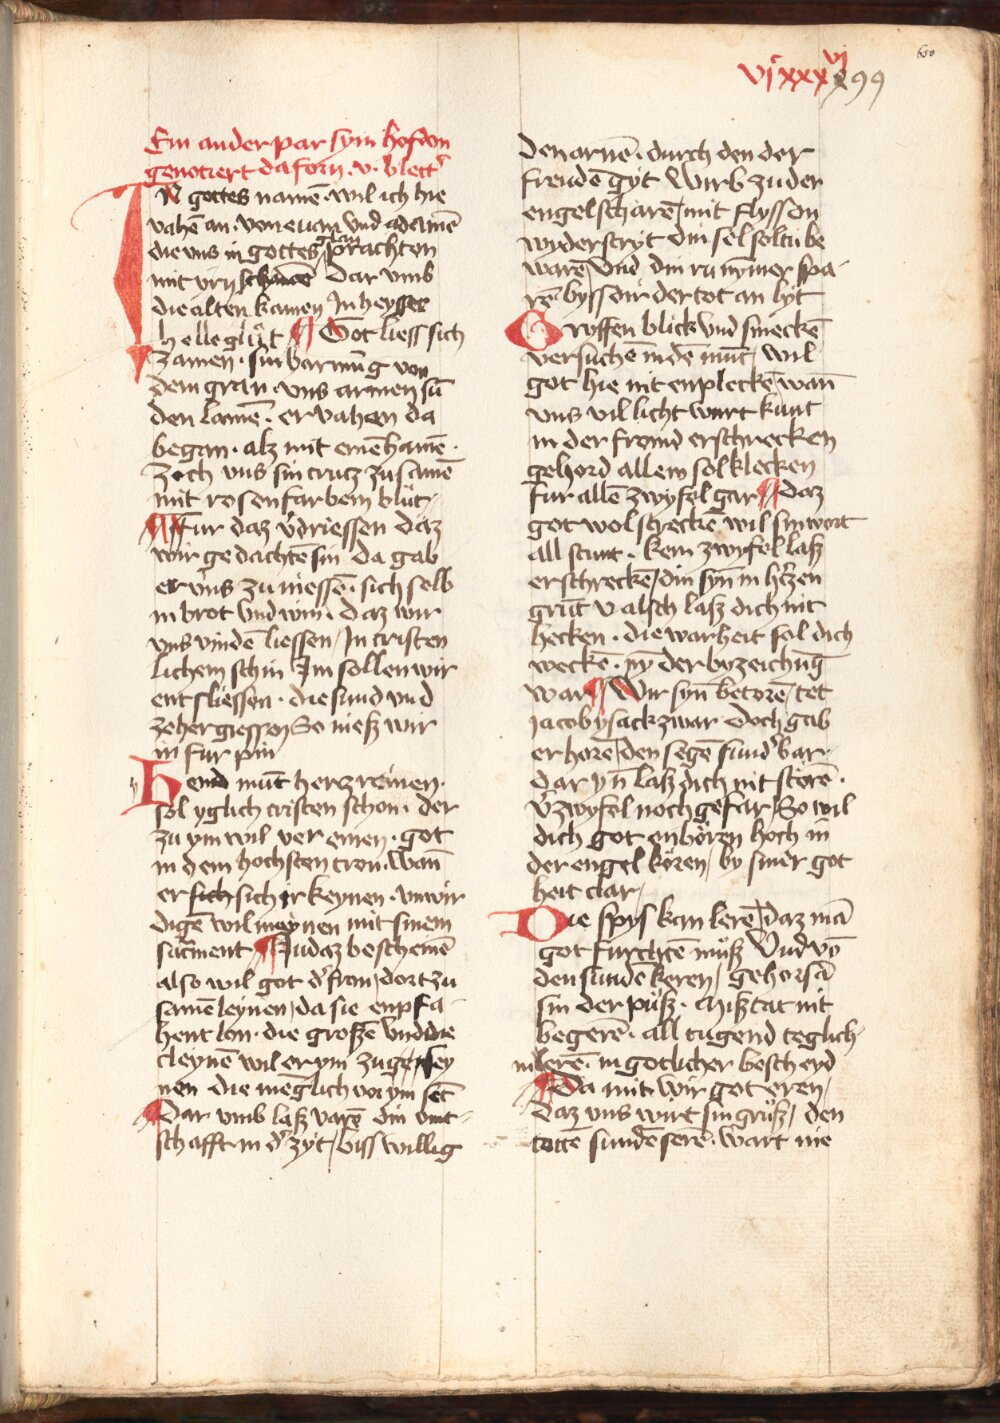 650
vjͨxxxvj 799
Ein ander par sym hofdon
genotiert da forn · v · blett͛
IN gottes namē · wil ich hie
vahē an · von euam vnd adamē
die vns in gottes gar prachten
mit vrn schamē Dar vmb
die alten kamen In heysser
helle glůt ¶ Got liess sich
zamen · sin barmūg von
dem gran · vns armen sū
den lamē · er vahen da
began · alz mit einē hamē ·
Zoch vns sin crucz zusamē
mit rosenfarbem blůt ·
¶ Fur daz v͛driessen daz
wir gedachtē sin da gab
er vns zu niessē · sich selb
in brot vnd win · daz wir
vns vindē liessen / In cristen
lichem schin Im sollen wir
entsliessen · die sund vnd
zeher giessen So niesz wir
in fur pin
Hend munt herz reinen ·
sol yglich cristen schon · der
zu ym wil ver einen · got
in dem hochsten tron · Wan̄
er sich sich erkeynen · vnwir
digē wil meynen mit sinem
sacment · ¶ Judaz beschemē
also wil got d͛ fron / dort zu
samē leynen / da sie enpfa
hent lon · die groszē vnd die
cleynē wil er ym zugesey
nen die menglich vor ym sēt
¶ Dar vmb lasz varē din vint
schafft in d͛ zyt / biss willig
den armē · durch den der
freudē gyt Wirb zu der
engel scharē / mit flyss on
widerstryt din sel soltu be
warē Vnd din ru nymer spa
rē byss dir der tot an lyt
Groffen blick vnd smeckē
versuchē in dē munt / wil
got hie nit enpleckē wan̄
vns vil licht wurt kunt
in der fromd erschrecken
gehord allein sol klecken
fur allē zwyfel gar ¶ daz
got wol streckē wil sin wort
all stunt · kein zwyfel lasz
erschreckē / din syn̄ in h͛zen
grūt valsch lasz dich nit
hecken · die warheit sol dich
weckē · ny der byzeichūg
war ¶ Wir syn̄ betorē / tet
Jacobs sack zwar doch gab
er horē / den segē sund͛bar ·
Dar yn̄ lasz dich nit storē ·
v͛zwyfel noch gefar / So wil
dich got enbören hoch in
der engel kören / by siner got
heit clar /
Die spys kan lerē / daz mā
got furchtē můsz Vnd vō
den sundē keren / gehorsā
sin der půsz · Misztat nit
begerē · all tugend teglich
merē · in gotlicher bescheyd
¶ Da mit wir got eren /
daz vns wirt sin grůsz / den
totte sundē sere · Wart nie